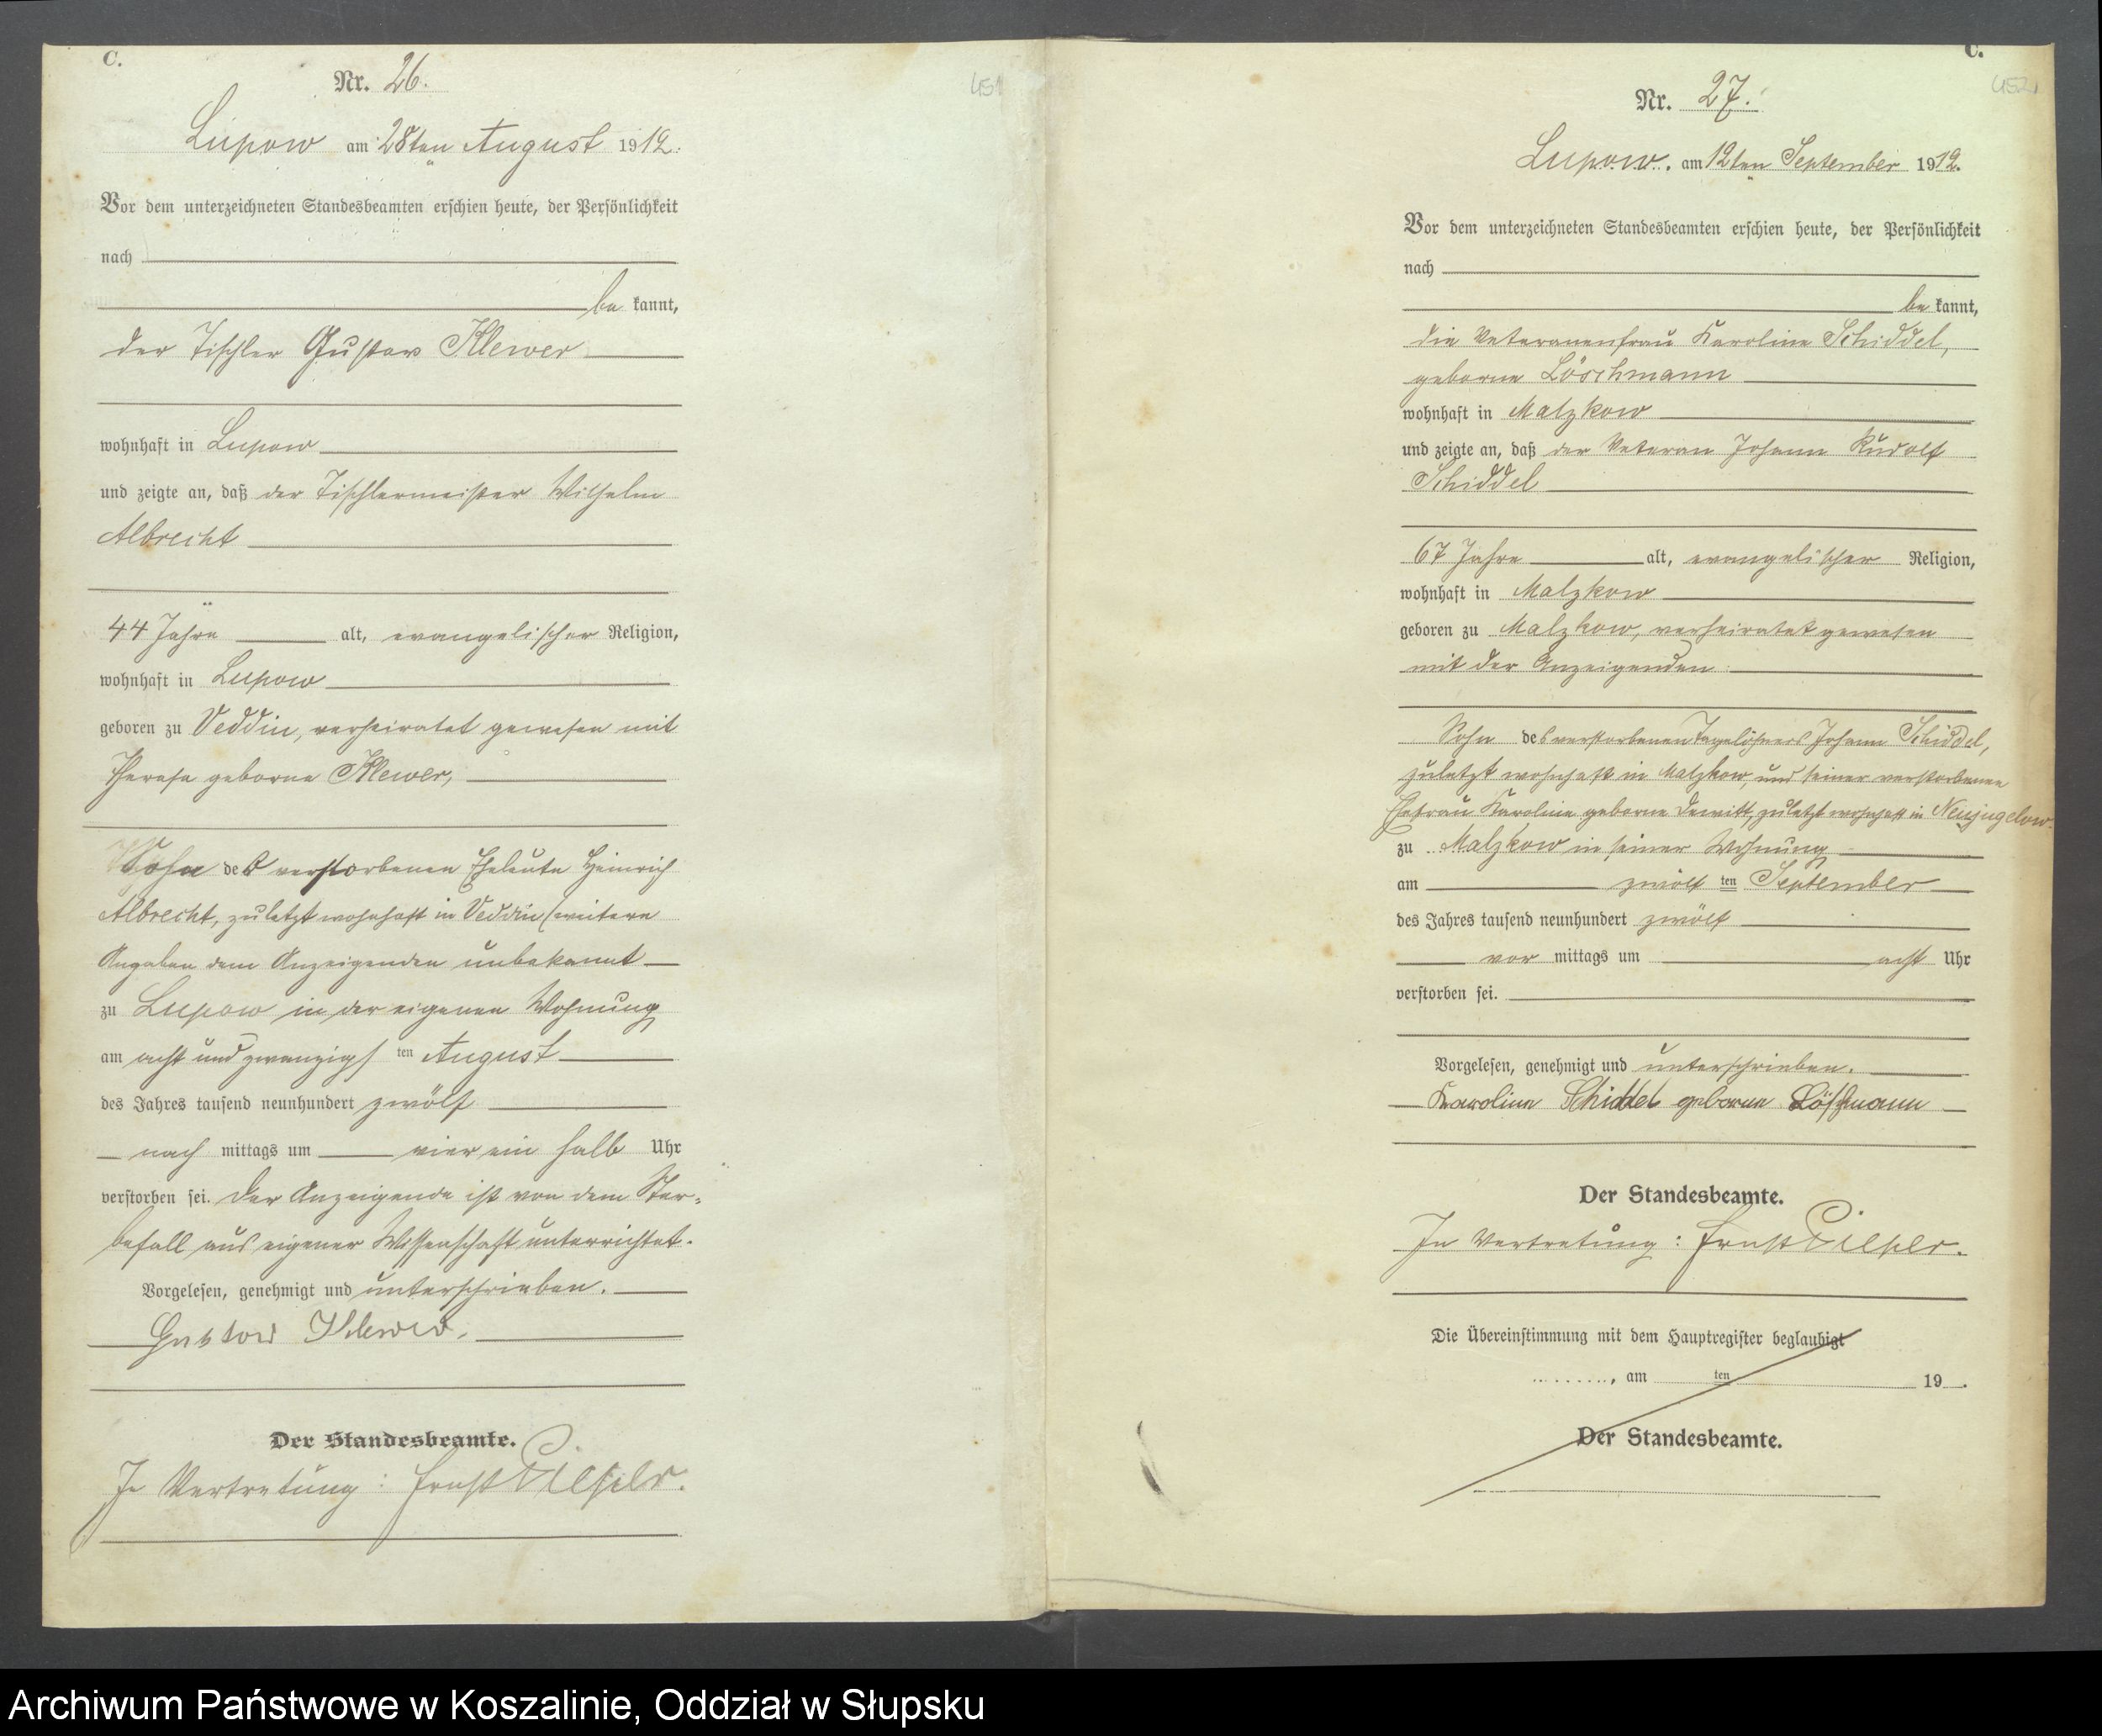 C.
Nr. 26.
451
Lupow am 28ten August 1912.
Vor dem unterzeichneten Standesbeamten erschien heute, der Persönlichkeit
nach
be kannt,
der Tischler Gustav Klewer
wohnhaft in Lupow
und zeigte an, daß der Tischlermeister Wilhelm
Albrecht
44 Jahre alt, evangelischer Religion,
wohnhaft in Lupow
geboren zu Veddin, verheiratet gewesen mit
Therese geborne Klewer,
Sohn der verstorbenen Eheleute Heinrich
Albrecht, zuletzt wohnhaft in Veddin (weitere
Angaben dem Anzeigenden unbekannt
zu Lupow in der eigenen Wohnung
am acht und zwanzigs ten August
des Jahres tausend neunhundert zwölf
nach mittags um vier ein halb Uhr
verstorben sei. Der Anzeigende ist von dem Ster-
befall aus eigener Wissenschaft unterrichtet.
Vorgelesen, genehmigt und unterschrieben.
Gustav Klewer.
Der Standesbeamte.
In Vertretung: Ernst
C.
Nr. 27.
452
Lupow. am 12ten September 1912.
Vor dem unterzeichneten Standesbeamten erschien heute, der Persönlichkeit
nach
be kannt,
die Veteranenfrau Karoline Schiddel,
geborne Löschmann
wohnhaft in Malzkow
und zeigte an, daß der Veteran Johann Rudolf
Schiddel
67 Jahre alt, evangelischer Religion,
wohnhaft in Malzkow
geboren zu Malzkow, verheiratet gewesen
mit der Anzeigenden
Sohn des verstorbenen Tagelöhners Johann Schiddel,
zuletzt wohnhaft in Malzkow, und seiner verstorbenen
Ehefrau Karoline geborne Dewitt, zuletzt wohnhaft in Neujugelow.
zu Malzkow in seiner Wohnung
am zwölf ten September
des Jahres tausend neunhundert zwölf
vor mittags um acht Uhr
verstorben sei.
Vorgelesen, genehmigt und unterschrieben.
Karoline Schiddel geborene Löschmann
Der Standesbeamte.
In Vertretung: Ernst
Die Übereinstimmung mit dem Hauptregister beglaubigt
, am ten 19 .
Der Standesbeamte.
Archiwum Państwowe w Koszalinie, Oddział w Słupsku